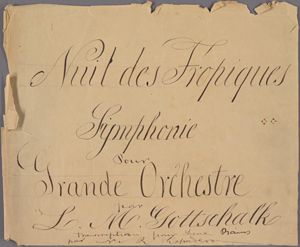 Nuit des Tropiques
Symphonie
pour
Grande Orchestre
par
L. M. Gottschalk
transcription pour deux Pianos
par